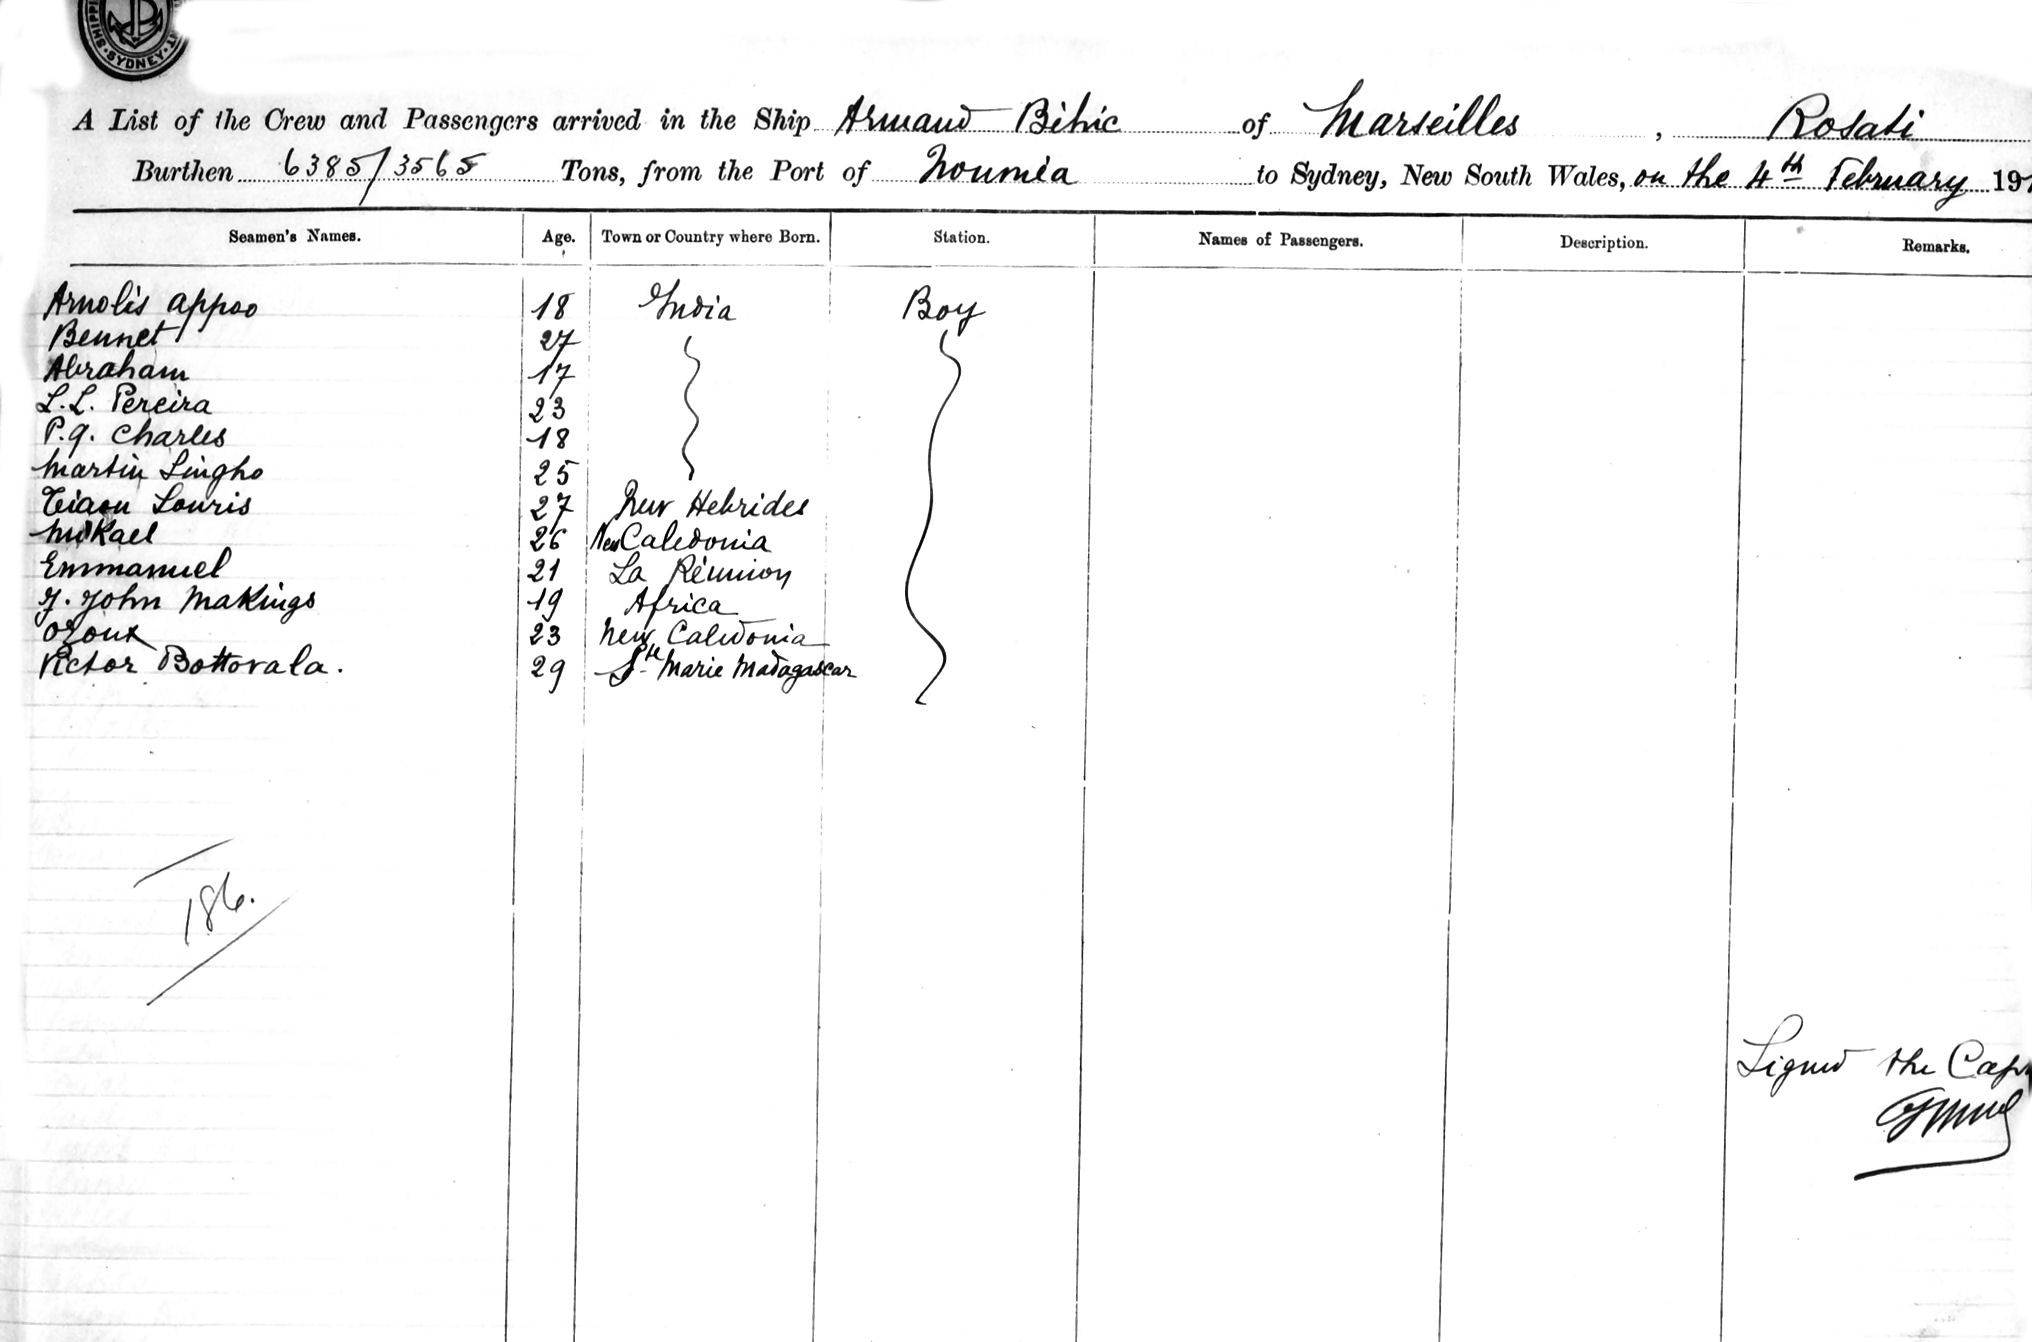 SHIPPI SYDNEY
A List of the Crew and Passengers arrived in the Ship Armand Béhic of Marseilles, Rosati
Burthen 6385/3565 Tons, from the Port of Nouméa to Sydney, New South Wales, on the 4th February 19
Seamen's Names. Age. Town or Country where Born. Station. Names of Passengers. Description. Remarks.
Arnolis appoo 18 India Boy
Bennet 27
Abraham 17
L.L. Pereira 23
P.g. Charles 18
Martin Singho 25
Louris 27 New Hebrides
Mikael 26 New Caledonia
Emmanuel 21 La Réunion
J. John Makings 19 Africa
Ozoux 23 New Caledonia
Victor Bottovala. 29 Ste Marie Madagascar
186.
Signed the Cap